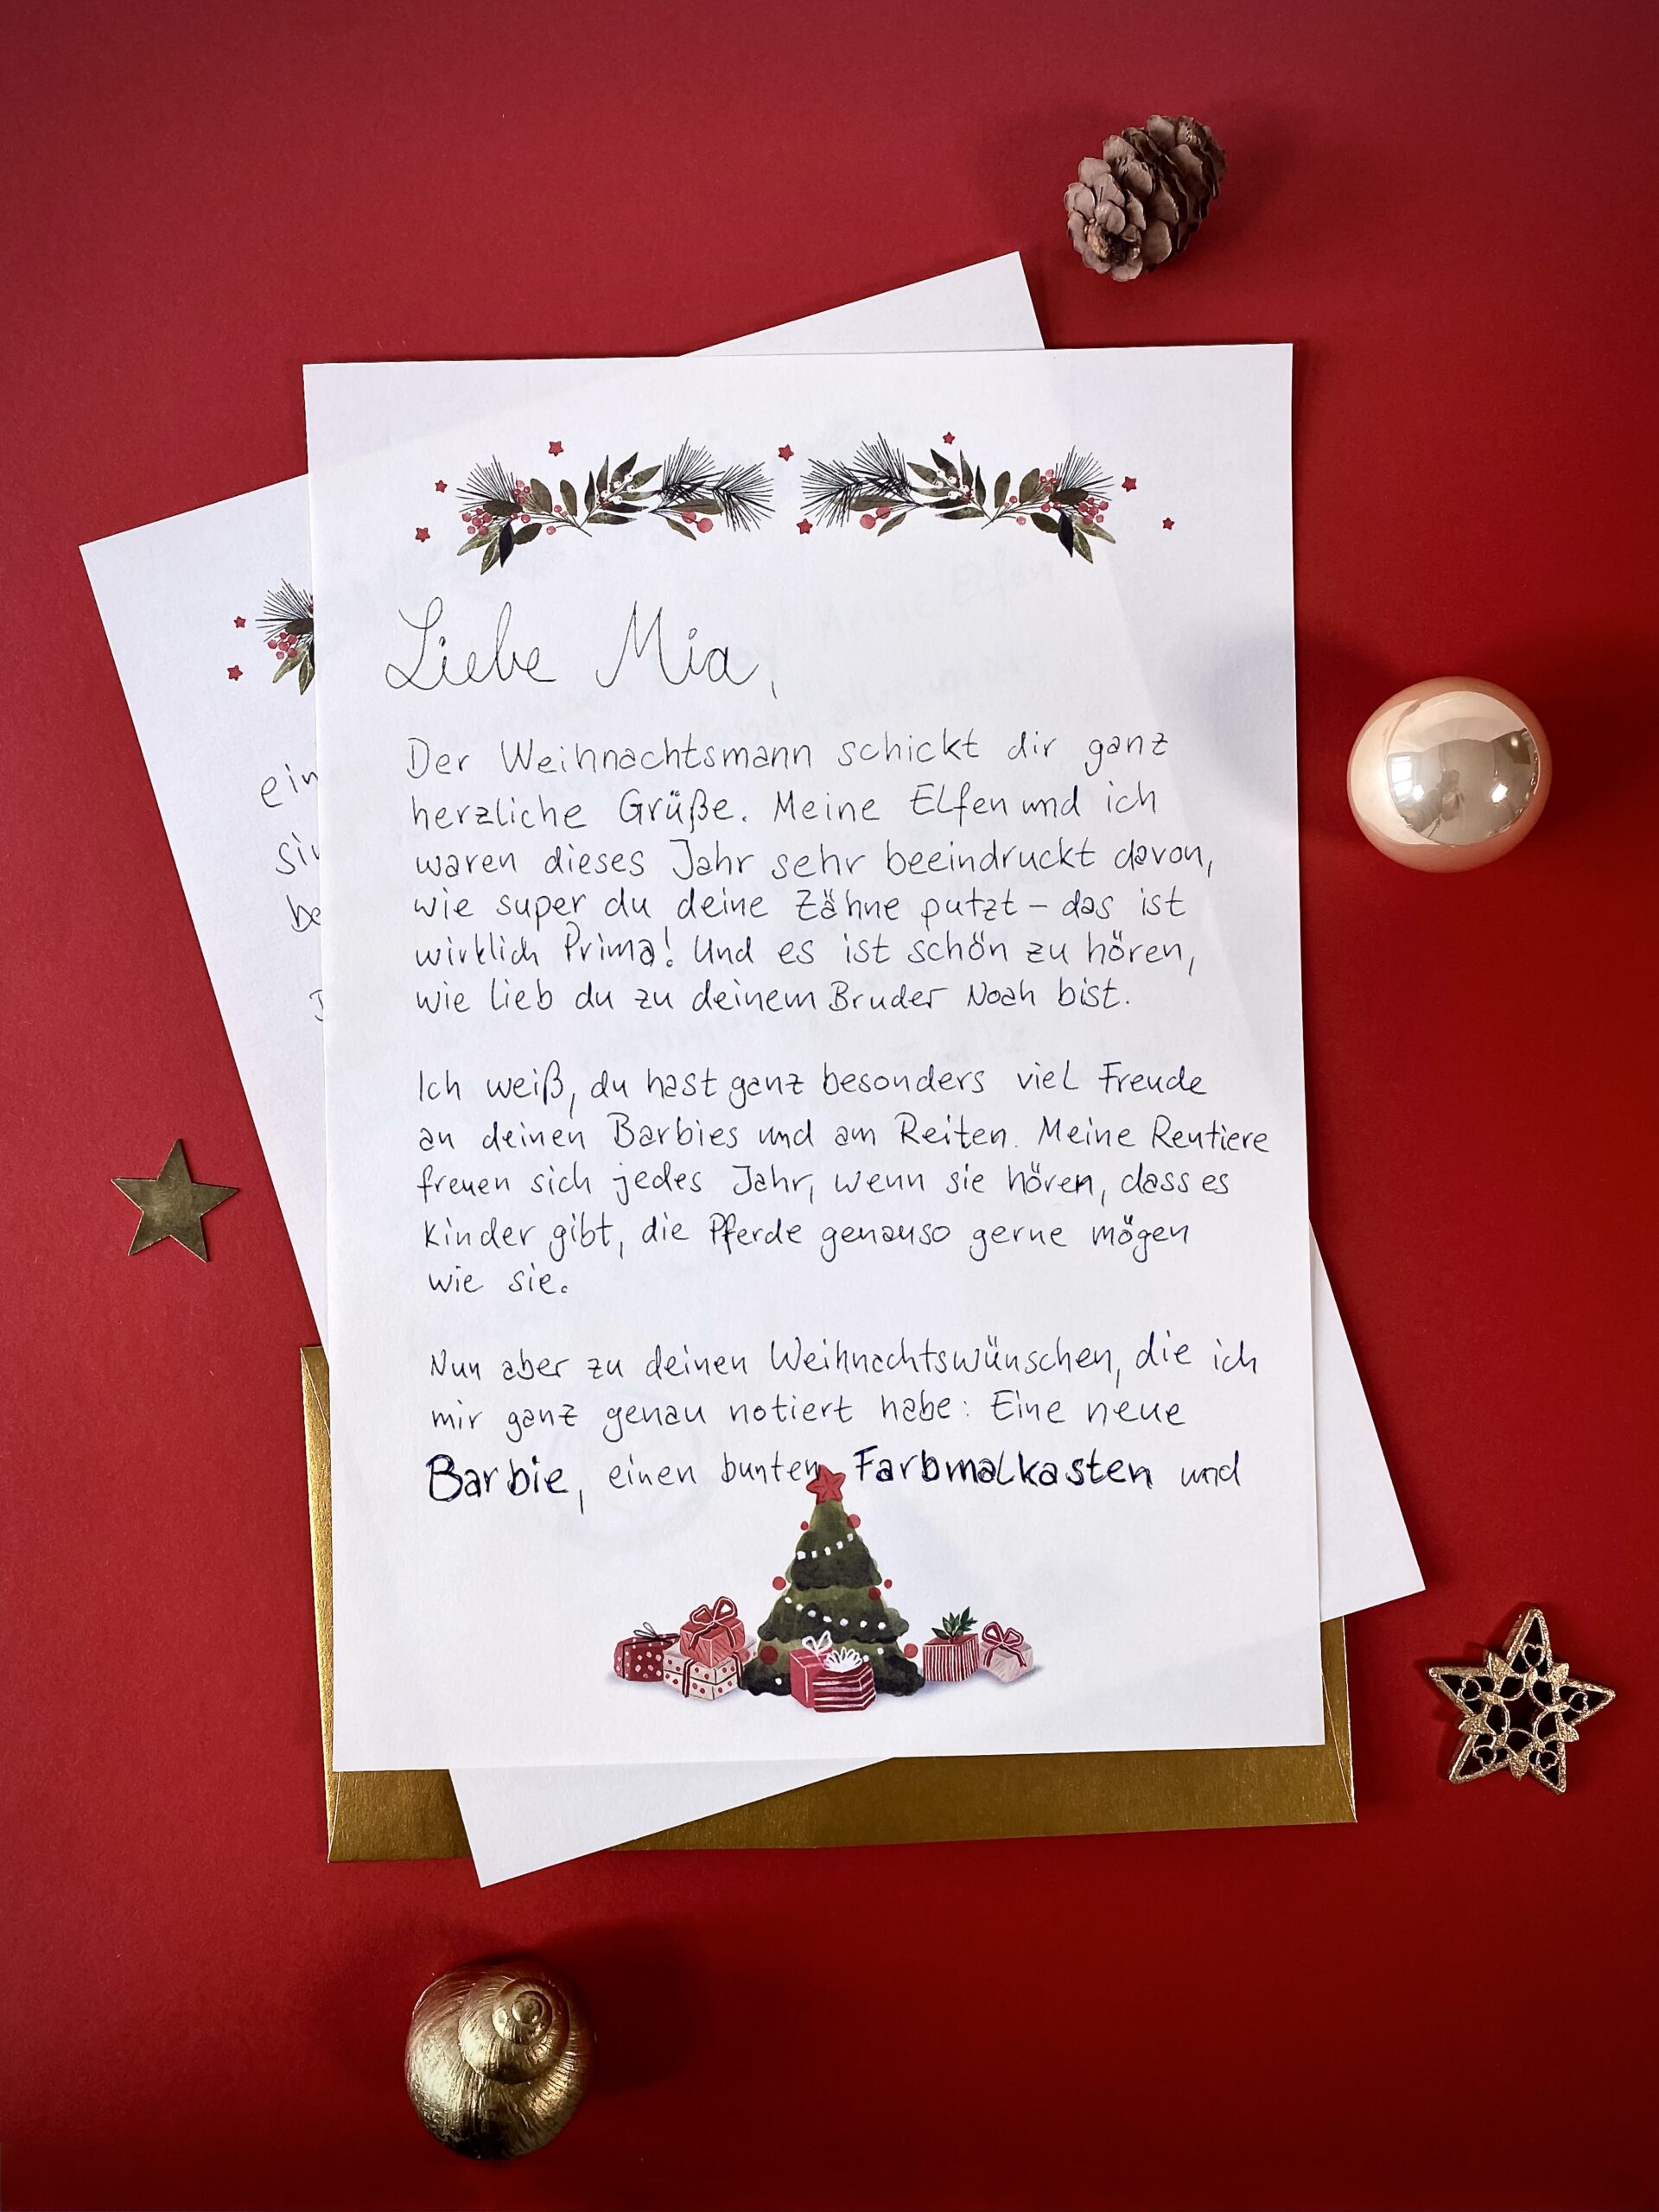 Liebe Mia,
Der Weihnachtsmann schickt dir ganz
herzliche Grüße. Meine Elfen und ich
waren dieses Jahr sehr beeindruckt davon,
wie super du deine Zähne putzt – das ist
wirklich Prima! Und es ist schön zu hören,
wie lieb du zu deinem Bruder Noah bist.
Ich weiß, du hast ganz besonders viel Freude
an deinen Barbies und am Reiten. Meine Rentiere
freuen sich jedes Jahr, wenn sie hören, dass es
Kinder gibt, die Pferde genauso gerne mögen
wie sie.
Nun aber zu deinen Weihnachtswünschen, die ich
mir ganz genau notiert habe: Eine neue
Barbie, einen bunten Farbmalkasten und